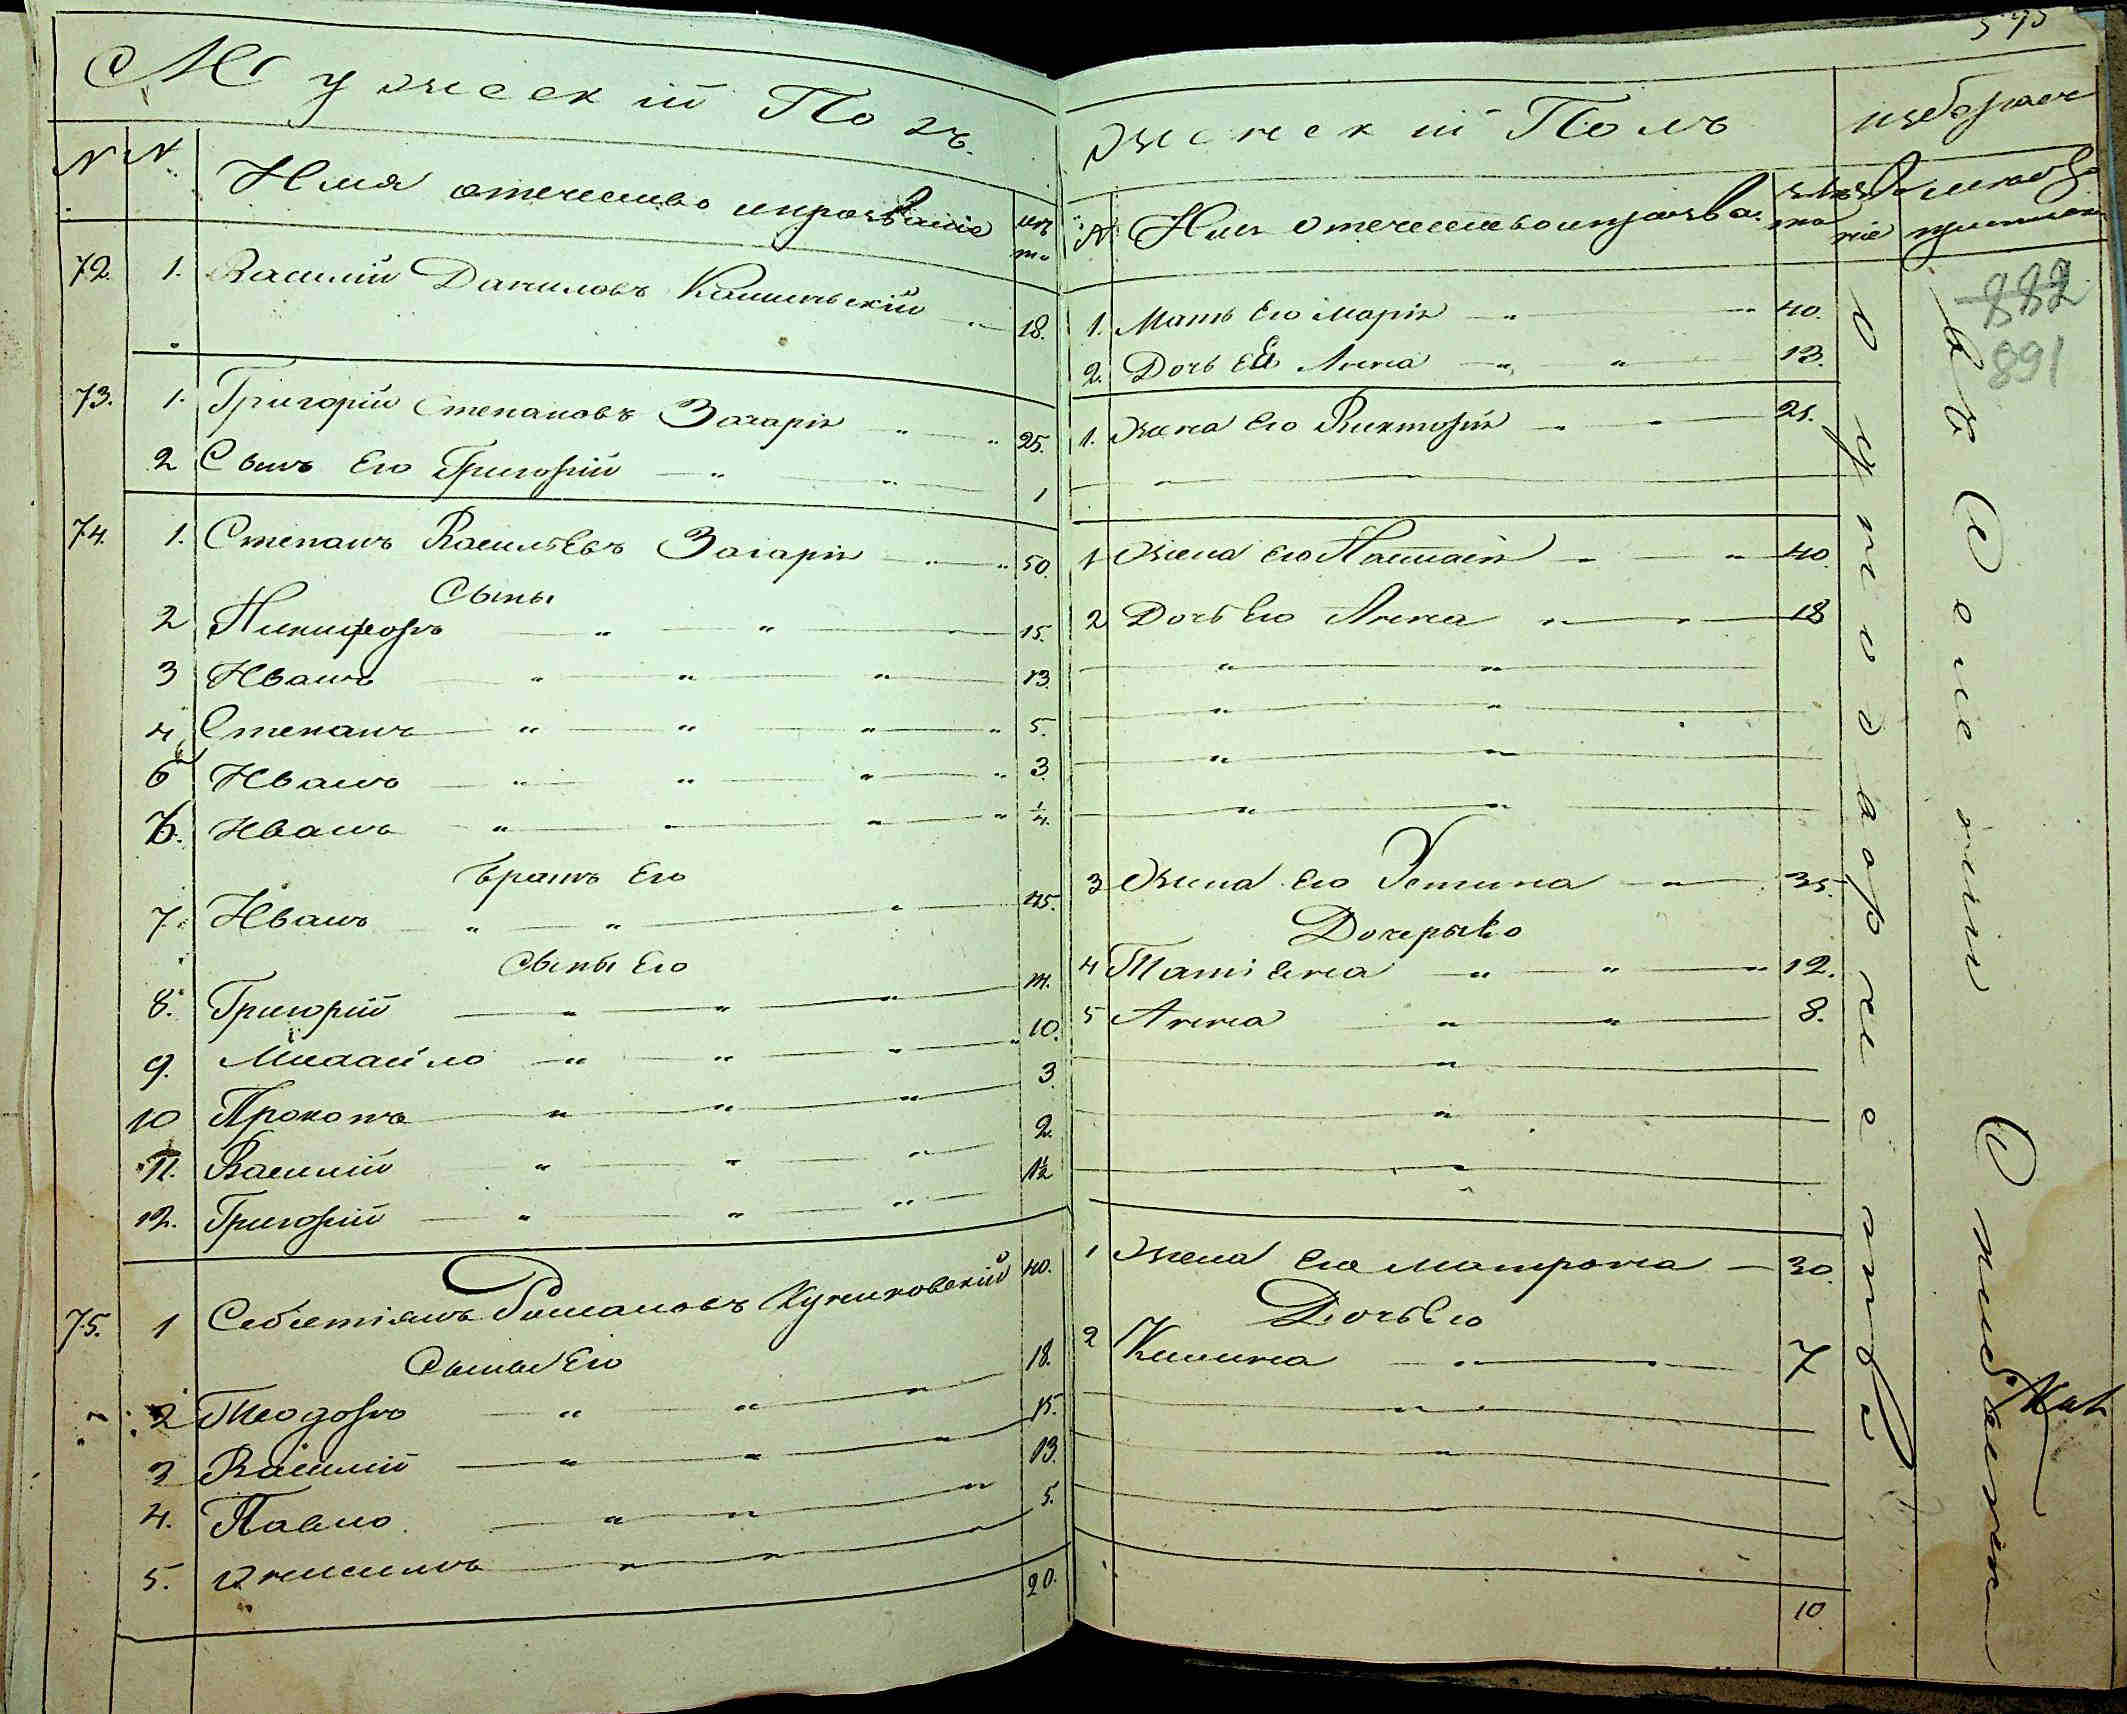 Мужескій Полъ
№ № Имя отечество и прозваніе лѣта
72. 1. Василій Даниловъ 18.
73. 1. Григорій Степановъ Загарія 25.
2 Сынъ Его Григорій 1
74. 1. Степанъ Васильевъ Загарія 50.
Сыны
2 Никифоръ 15.
3 Иванъ 13.
4 Степанъ 5.
6 Иванъ 3.
Иванъ 1/4.
Братъ Его
7. Иванъ 45.
Сыны Его
8. Григорій 14.
9. Михайло 10.
10 Прокопъ 3
11. Василій 2.
12. Григорій 1 1/2
75. 1 Романовъ 40.
Сыны Его
2 Теодоръ 18.
3 Василій 15.
4. Павло 13.
5. Онисимъ 5.
20.
595
Женскій Полъ
№ Имя отечество и прозва. лѣта
1. Мать Его Марія 40.
2. Дочь Ея Анна 13.
1. Жена Его Виктория 21.
1 Жена Его 40.
2 Дочь Его Анна 18
3 Жена Его Устина 35.
Дочеръ Его
4 Татіяна 12.
5 Анна 8.
1 Жена Его Матрона 30.
Дочь Его
2 7
10
882
891
въ Селеніи